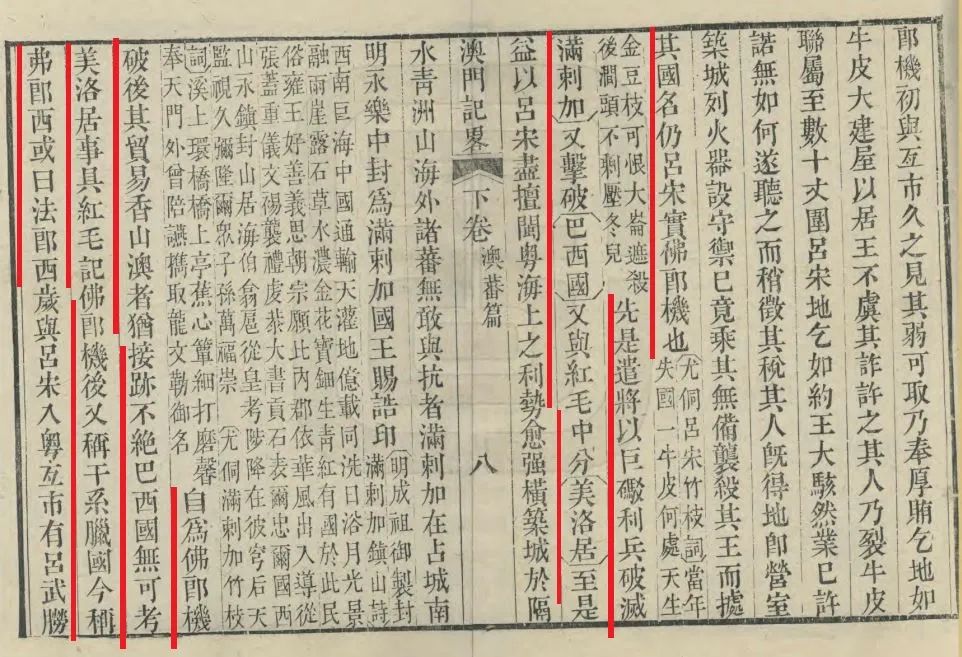 郎機初與互市久之見其弱可取乃奉厚賄乞地如
牛皮大建屋以居王不虞其詐許之其人乃裂牛皮
聯屬至數十丈圍呂宋地乞如約王大駭然業已許
諾無如何遂聽之而稍徵其稅其人旣得地卽營室
築城列火器設守禦已竟乘其無備襲殺其王而據
其國名仍呂宋實佛郎機也
尤侗呂宋竹枝詞當年
失國一牛皮何處天生
金豆枝可恨大崙遮殺
後澗頭不剩壓冬兒
先是遣將以巨礮利兵破滅
滿剌加又擊破巴西國又與紅毛中分美洛居至是
益以呂宋盡擅閩粵海上之利勢愈强橫築城於隔
澳門記畧 下卷 澳蕃篇 八
水靑洲山海外諸蕃無敢與抗者滿剌加在占城南
明永樂中封爲滿剌加國王賜誥印
明成祖御製封
滿剌加鎭山詩
西南巨海中國通輸天灌地億載同洗日浴月光景
融雨崖露石草木濃金花寶鈿生靑紅有國於此民
俗雍王好善義思朝宗願比內郡依華風出入導從
張蓋重儀文裼襲禮虔恭大書貞石表爾忠爾國西
山永鎭封山居海伯翕扈從皇考陟降在彼穹后天
監視久彌隆爾衆子孫萬福崇 尤侗滿剌加竹枝
詞溪上環橋橋上亭蕉心簟細打磨馨
奉天門外曾陪讌擕取龍文勒御名
自爲佛郎機
破後其貿易香山澳者猶接跡不絕巴西國無可考
美洛居事具紅毛記佛郎機後又稱干系臘國今稱
弗郎西或曰法郎西歲與呂宋入粵互市有呂武勝